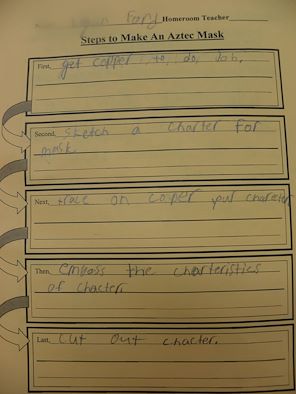 Ford Homeroom Teacher
Steps to Make An Aztec Mask
First, get copper to do Job.
Second, sketch a charter for
mask
Next, trace on copper your charecter
Then, embass the charteristics
of chacter.
Last, cut out chacter.